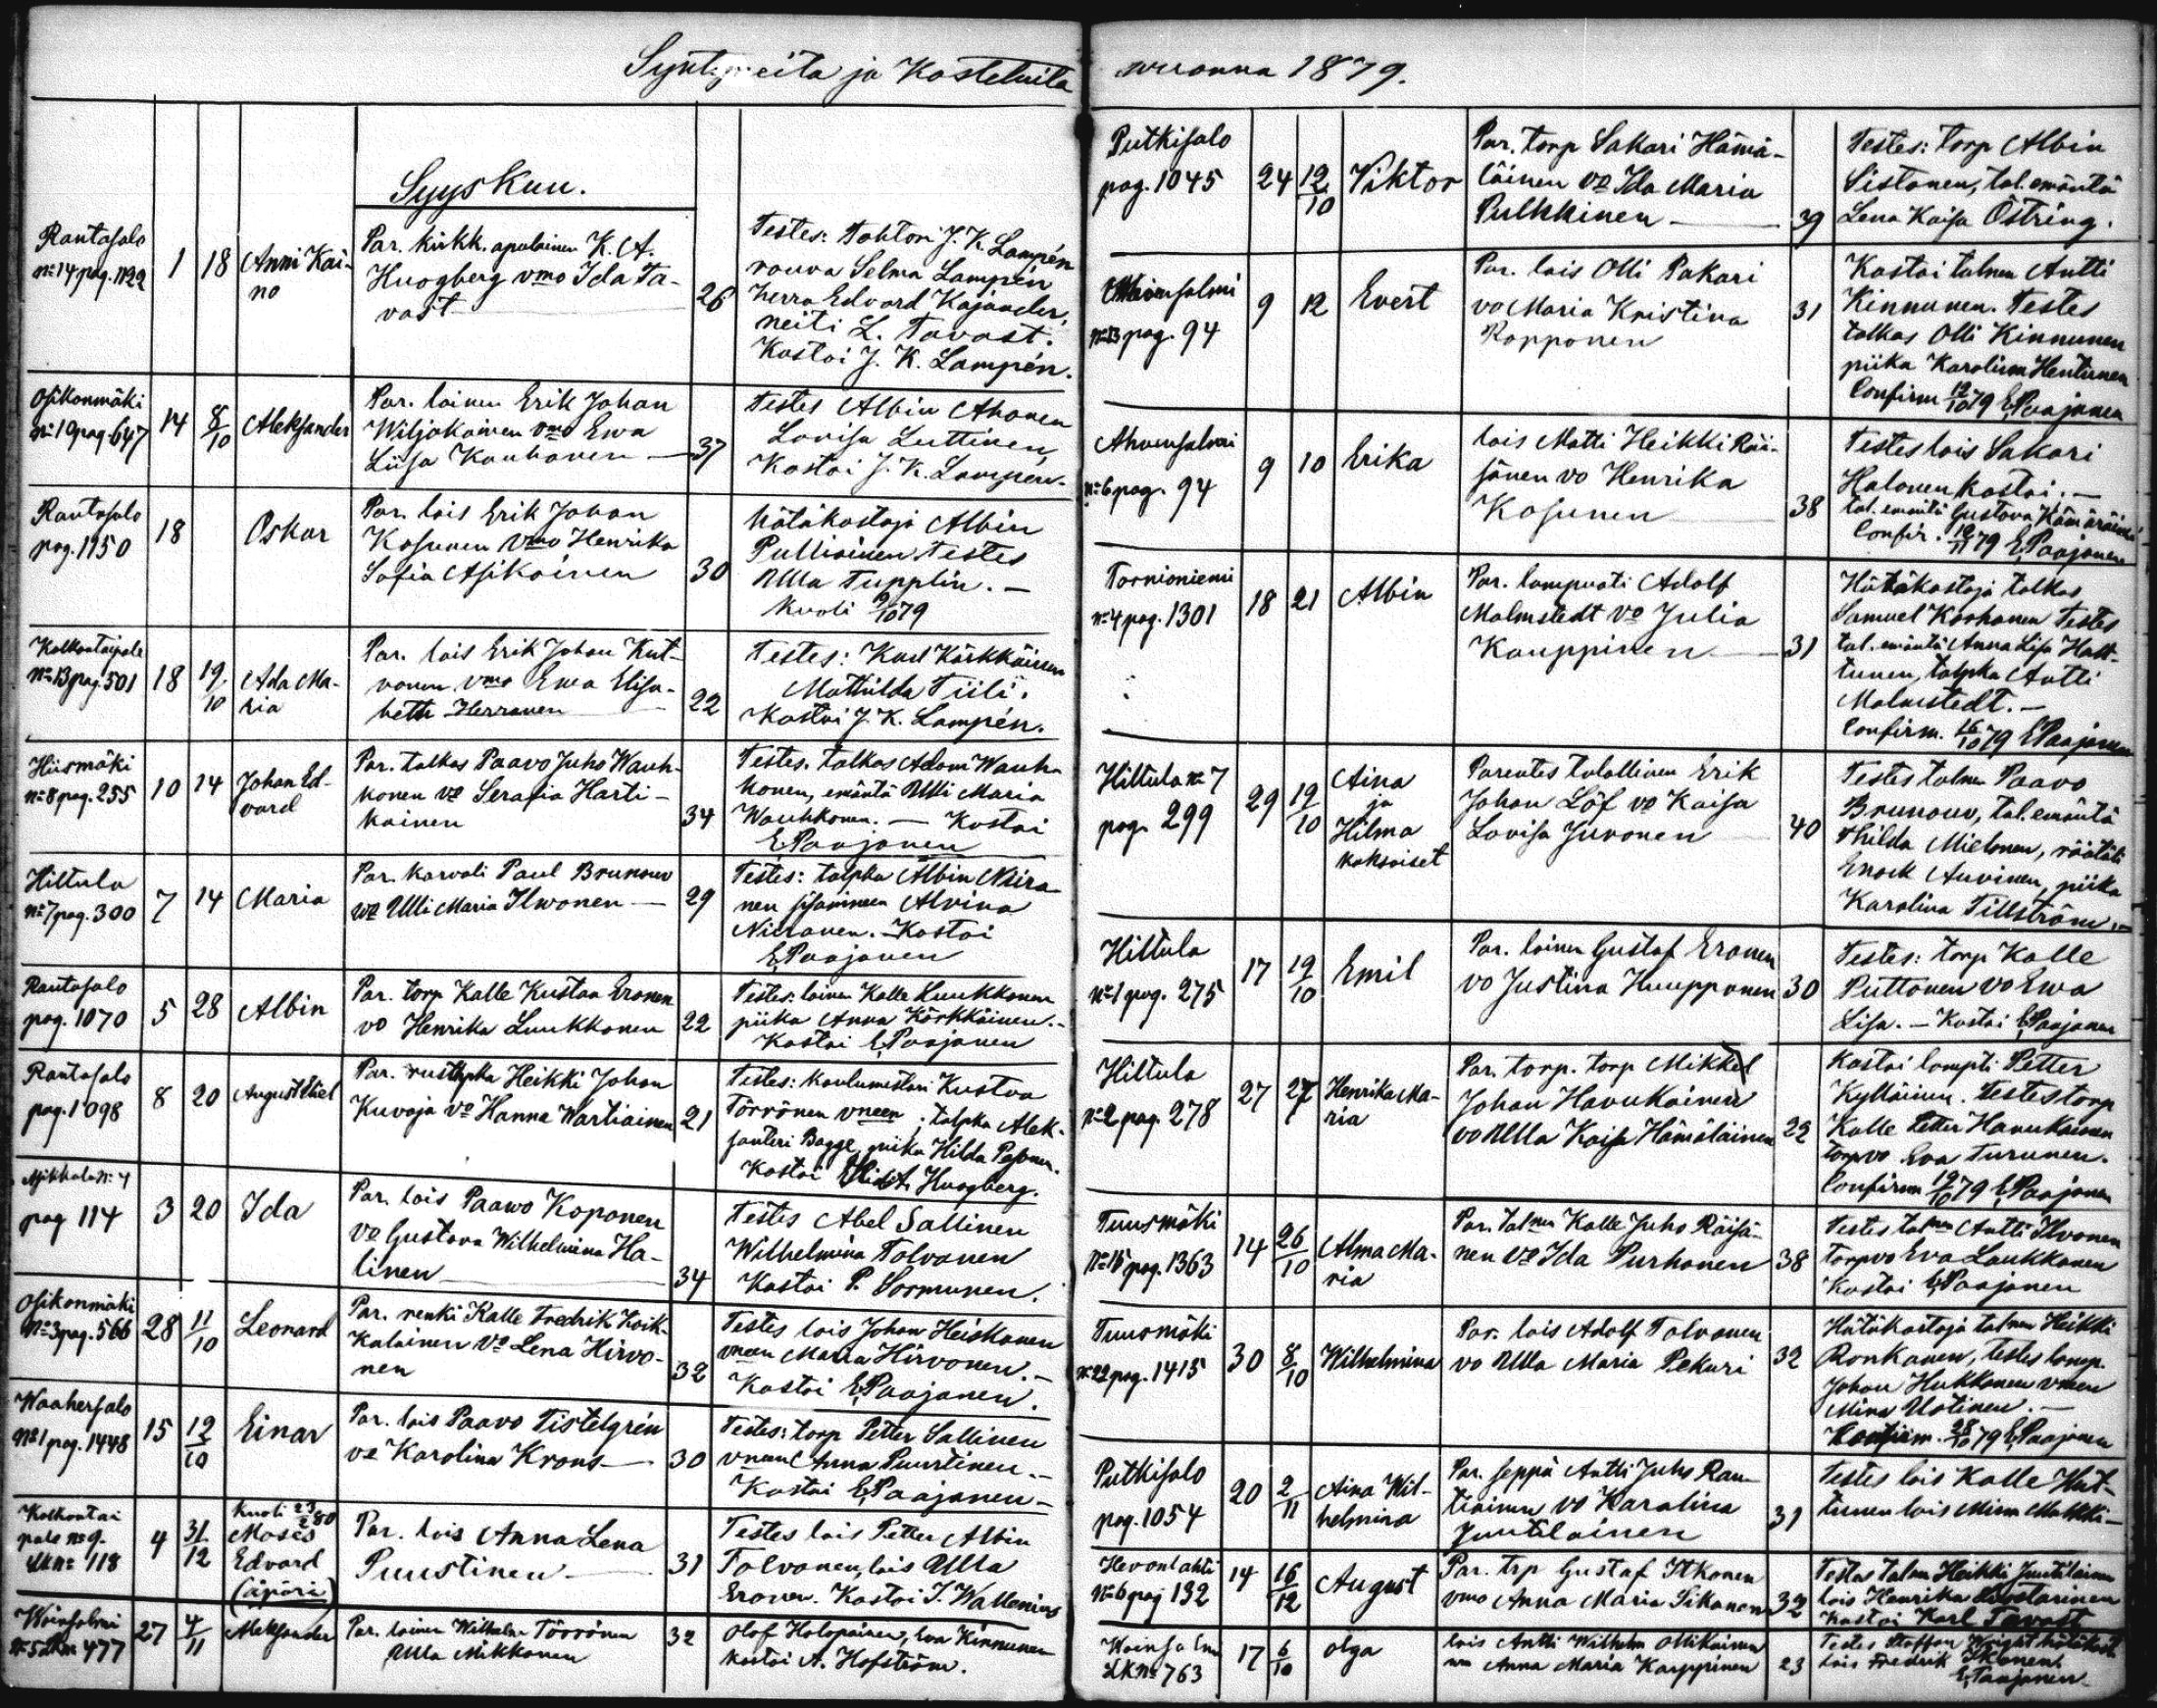 Syntyneitä ja Kastetuita vuonna 1879.
Syyskuu.
Rantasalo
No 14 pag. 1122
1 18 Anni Kai-
no
Par. kirkk. apulainen K. A.
Huogberg vmo Ida Ta-
vast
26
Testes: Tohtori J. K. Lampén
rouva Selma Lampén
herra Edvard Kajander,
neiti L. Tavast.
Kastoi J. K. Lampén.
Osikonmäki
No 19 pag. 647
14 8/10 Aleksander
Par. loinen Erik Johan
Wiljakainen vmo Ewa
Liisa Kauhanen
37
Testes Albin Ahonen
Lovisa Luttinen,
Kastoi J. K. Lampén.
Rantasalo
pag. 1150
18 Oskar
Par. lois Erik Johan
Kosunen vmo Henrika
Sofia Asikainen
30
Hätäkastaja Albin
Pulliainen Testes
Ulla Tupplin.
Kuoli 9/10 79
Kolkontaipale
No 13 pag. 501
18 19/10 Ada Ma-
ria
Par. lois Erik Johan Kut-
vonen vmo Ewa Elisa-
beth Herranen
22
Testes: Karl Kärkkäinen
Mathilda Tiili.
Kastoi J. K. Lampén.
Hiismäki
No 8 pag. 255
10 14 Johan Ed-
vard
Par. talkas Paavo Juho Wauh-
konen vo Serafia Harti-
kainen
34
Testes. talkas Adam Wauh-
konen, emäntä Ulli Maria
Wauhkonen. — Kastoi
E. Paajanen
Hiltula
No 7 pag. 300
7 14 Maria
Par. karvali Paul Brunow
vo Ulli Maria Ilwonen
29
Testes: talpka Albin Niira-
nen sisarineen Alvina
Niiranen. — Kastoi
E. Paajanen
Rantasalo
pag. 1070
5 28 Albin
Par. torp Kalle Kustaa Eronen
vo Henrika Luukkonen
22
Testes: loinen Kalle Luukkonen
piika Anna Kärkkäinen. —
Kastoi E. Paajanen
Rantasalo
pag. 1098
8 20 August
Par. Heikki Johan
Kuvaja vo Hanna Wartiainen
21
Testes: koulumestari Kustva
Törrönen vneen, talpka Alek-
santeri Bagge, piika Hilda
Kastoi Huogberg.
No 4
pag 114
3 20 Ida
Par. lois Paawo Koponen
vo Gustava Wilhelmina Ha-
linen
34
Testes Abel Sallinen
Wilhelmina Tolvanen
Kastoi P. Sormunen.
Osikonmäki
No 3 pag. 566
28 11/10 Leonard
Par. renki Kalle Fredrik Koik-
kalainen vo Lena Hirvo-
nen
32
Testes lois Johan Heiskanen
vneen Maria Hirvonen. —
Kastoi E. Paajanen.
Waahersalo
No 1 pag. 1448
15 12/10 Einar
Par. lois Paavo Tistelgrén
vo Karolina Krons
30
Testes: torp Petter Sallinen
vneen Anna Puustinen. —
Kastoi E. Paajanen —
Kolkontai
pale no 9.
LK No 118
4 31/12
Kuoli 23/2 80
Moses
Edvard
(äpärä)
Par. lois Anna Lena
Puustinen
31
Testes lois Petter Albin
Tolvanen, lois Ulla
Eronen. Kastoi J. Wallenius
No 5 477
27 4/11 Aleksander
Par. loinen Wilhelm Törrönen
Ulla Mikkonen
32
Olof Holopainen, Eva Kinnunen
kastoi A. Hofström.
Putkisalo
pag. 1045
24 12/10 Viktor
Par. torp Sakari Hämä-
läinen vo Ida Maria
Pulkkinen
39
Testes: torp Albin
Sistonen, tal. emäntä
Lena Kaisa Östring.
No 13 pag. 94
9 12 Evert
Par. lois Olli Pakari
vo Maria Kristina
Ropponen
31
Kastoi talmen Antti
Kinnunen. Testes
talkas Olli Kinnunen
piika Karolina Hentunen
Confirm 12/10 79 E. Paajanen
Ahvensalmi
No 6 pag. 94
9 10 Erika
lois Matti Heikki Räi-
sänen vo Henrika
Kosunen
38
Testes lois Sakari
Halonen kastoi. —
tal. emäntä Gustava
Confir. 79 E. Paajanen
Tornioniemi
No 4 pag. 1301
18 21 Albin
Par. lampuoti Adolf
Malmstedt vo Julia
Kauppinen
31
Hätäkastaja talkas
Samuel Korhonen Testes
tal. emäntä Anna Lisa Hatt-
tunen, talpka Antti
Malmstedt. —
Confirm. 16/10 79 E. Paajanen
Hiltula No 7
pag. 299
29 19/10 Aina
ja
Hilma
kaksoiset
Parentes talollinen Erik
Johan Löf vo Kaisa
Lovisa Juvonen
40
Testes talmen Paavo
Brunow, tal. emäntä
Thilda Mielonen, räätäli
Enock Auvinen, piika
Karolina Tillström. —
Hiltula
No 1 pag. 275
17 19/10 Emil
Par. loinen Gustaf Eronen
vo Justina Huupponen
30
Testes: torp Kalle
Puttonen vo Ewa
Lisa. — Kastoi E. Paajanen
Hiltula
No 2 pag. 278
27 27 Henrika Ma-
ria
Par. torp. torp Mikkel
Johan Havukainen
vo Ulla Kaisa Hämäläinen
22
Kastoi lampti Petter
Kylläinen. Testes torp
Kalle Petter Hanukainen
torp vo Eva Turunen.
Confirm 19/10 79 E. Paajanen
Tuusmäki
No 15 pag. 1363
14 26/10 Alma Ma-
ria
Par. talmen Kalle Juho Räisä-
nen vo Ida Purhonen
38
Testes talmen Antti Ilvonen
torp vo Eva Laukkanen
Kastoi E. Paajanen
Tuusmäki
No 22 pag. 1415
30 8/10 Wilhelmina
Par. lois Adolf Tolvanen
vo Ulla Maria Pekuri
32
Hätäkastaja talmen Heikki
Ronkanen, testes lamp.
Johan Hukkanen vneen
Mina Uotinen. —
Confirm. 28/10 79 E. Paajanen
Putkisalo
pag. 1054
20 2/11 Aina Wil-
helmina
Par. seppä Antti Juho Rau-
tiainen vo Karolina
Juutilainen
31
Testes lois Kalle Hut-
tunen lois Minna
Hevonlahti
No 6 pag 132
14 16/12 August
Par. trp Gustaf Itkonen
vmo Anna Maria Sikanen
32
Testes talmen Heikki Juutilainen
lois Henrika
Kastoi Karl Tavast
LK No 763
17 6/10 Olga
lois Antti Wilhelm Ollikainen
Anna Maria Karppinen
23
Testes Staffan Wright
lois Fredrik Ikonen
E. Paajanen